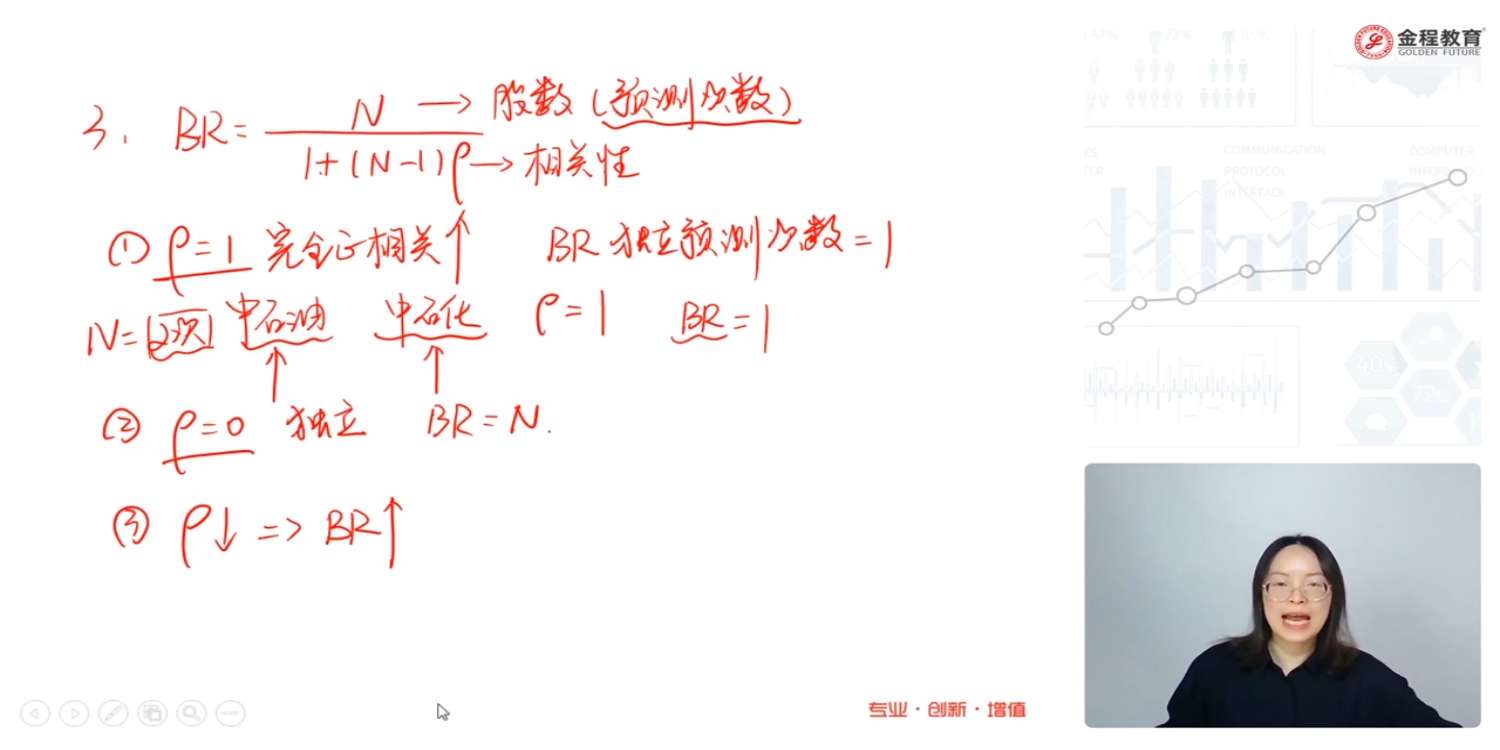 3. BR = N / 1+(N-1)ρ
N → 股数 (预测次数)
ρ → 相关性
① ρ=1 完全正相关↑ BR 独立预测次数=1
N=2次 中石油 中石化 ρ=1 BR=1
② ρ=0 独立 BR=N.
③ ρ↓ => BR↑
金程教育
GOLDEN FUTURE
COMMUNICATION
PROTOCOL
INTERFACE
COMPUTER
专业·创新·增值